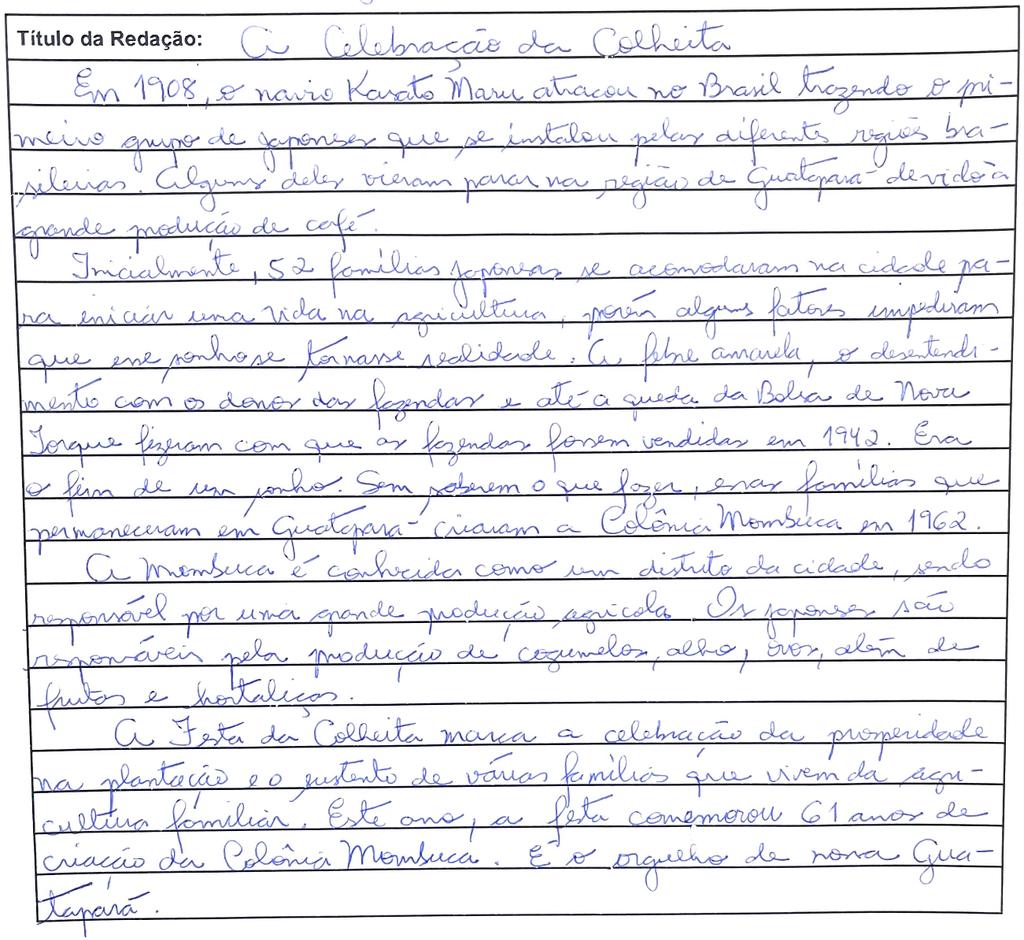 Título da Redação: A Celebração da Colheita
Em 1908, o navio Kasato Maru atracou no Brasil trazendo o pri-
meiro grupo de japoneses que se instalou pelas diferentes regiões bra-
sileiras. Alguns deles vieram parar na região de Guatapará devido à
grande produção de café.
Inicialmente, 52 famílias japonesas se acomodaram na cidade pa-
ra iniciar uma vida na agricultura, porém alguns fatores impediram
que esse sonho se tornasse realidade. A febre amarela, o desentendi-
mento com os donos das fazendas e até a queda da Bolsa de Nova
Iorque fizeram com que as fazendas fossem vendidas em 1942. Era
o fim de um sonho. Sem saberem o que fazer, essas famílias que
permaneceram em Guatapará criaram a Colônia Mombuca em 1962.
A Mombuca é conhecida como um distrito da cidade, sendo
responsável por uma grande produção agrícola. Os japoneses são
responsáveis pela produção de cogumelos, alho, ovos, além de
frutas e hortaliças.
A Festa da Colheita marca a celebração da prosperidade
na plantação e o sustento de várias famílias que vivem da agri-
cultura familiar. Este ano, a festa comemorou 61 anos de
criação da Colônia Mombuca. É o orgulho de nossa Gua-
tapará.